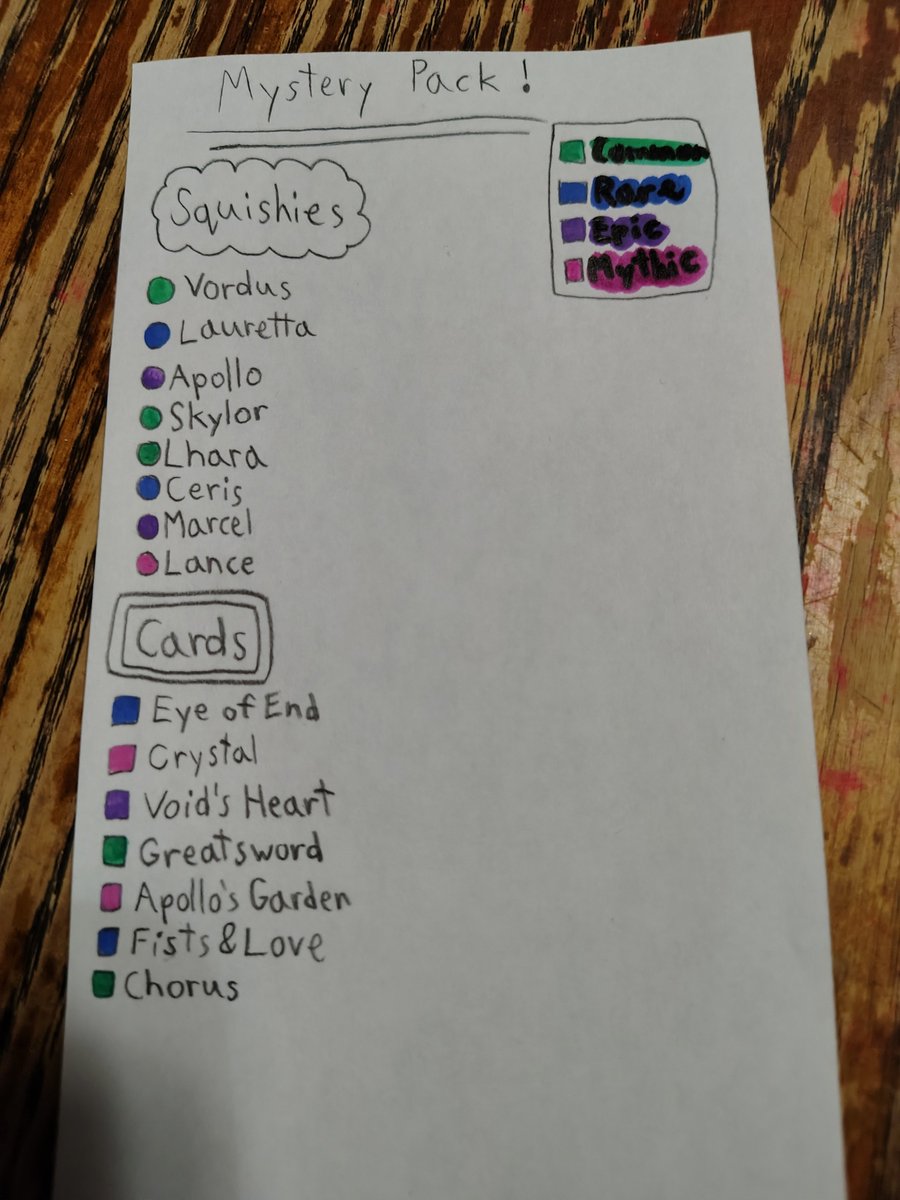 Mystery Pack!
Common
Rare
Epic
Mythic
Squishies
Vordus
Lauretta
Apollo
Skylor
Lhara
Ceris
Marcel
Lance
Cards
Eye of End
Crystal
Void's Heart
Greatsword
Apollo's Garden
Fists & Love
Chorus